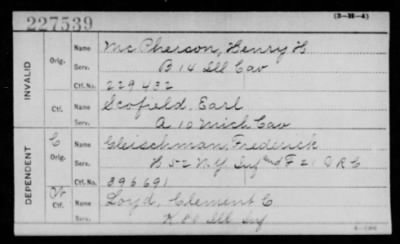 227539
(3-H-4)
INVALID
Orig. Name McPherson, Henry H
Serv. B 14 Ill Cav
Ctf. No. 229432
Ctf. Name Scofield, Earl
Serv. A 10 Mich Cav
DEPENDENT
C
Orig. Name Gleischman, Frederick
Serv. H 52 N.Y. Inf and F 21 V R C
Ctf. No. 396691
Ctf. Name Loyd, Clement C
Serv. K Ill Inf